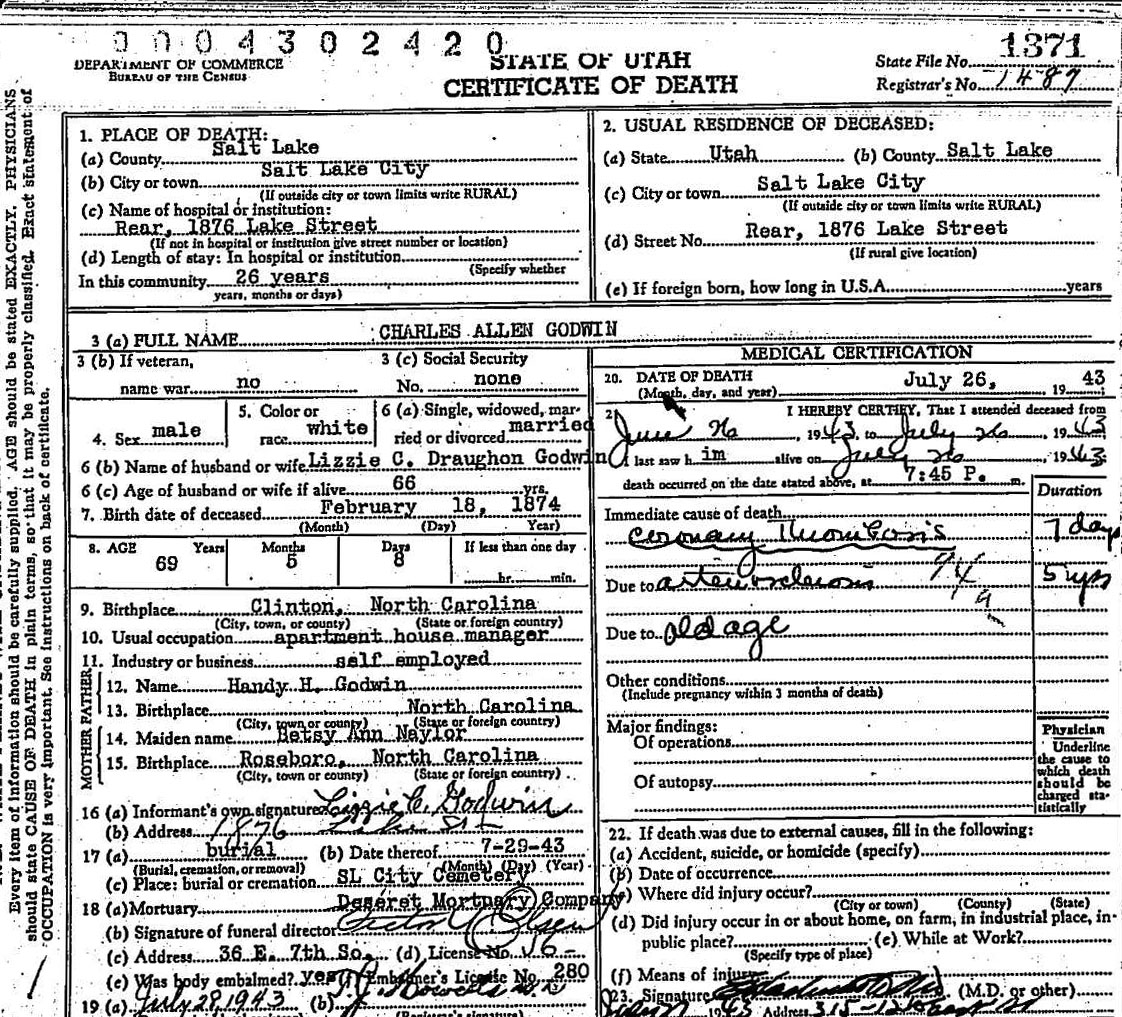 0004302420
1371
DEPARTMENT OF COMMERCE
BUREAU OF THE CENSUS
STATE OF UTAH
CERTIFICATE OF DEATH
State File No.
Registrar's No. 1487
Every item of information should be carefully supplied. AGE should be stated EXACTLY. PHYSICIANS
should state CAUSE OF DEATH in plain terms, so that it may be properly classified. Exact statement of
OCCUPATION is very important. See instructions on back of certificate.
1. PLACE OF DEATH:
(a) County Salt Lake
(b) City or town Salt Lake City
(If outside city or town limits write RURAL)
(c) Name of hospital or institution:
Rear, 1876 Lake Street
(If not in hospital or institution give street number or location)
(d) Length of stay: In hospital or institution
(Specify whether
In this community 26 years
years, months or days)
2. USUAL RESIDENCE OF DECEASED:
(a) State Utah (b) County Salt Lake
(c) City or town Salt Lake City
(If outside city or town limits write RURAL)
(d) Street No. Rear, 1876 Lake Street
(If rural give location)
(e) If foreign born, how long in U.S.A. years
3 (a) FULL NAME CHARLES ALLEN GODWIN
3 (b) If veteran, 3 (c) Social Security
name war no No. none
4. Sex male 5. Color or race white 6 (a) Single, widowed, married or divorced married
6 (b) Name of husband or wife Lizzie C. Draughon Godwin
6 (c) Age of husband or wife if alive 66 yrs.
7. Birth date of deceased February 18, 1874
(Month) (Day) Year)
8. AGE Years Months Days If less than one day
69 5 8 hr. min.
9. Birthplace Clinton, North Carolina
(City, town, or county) (State or foreign country)
10. Usual occupation apartment house manager
11. Industry or business self employed
FATHER
12. Name Handy H. Godwin
13. Birthplace North Carolina
(City, town or county) (State or foreign country)
MOTHER
14. Maiden name Betsy Ann Naylor
15. Birthplace Roseboro, North Carolina
(City, town or county) (State or foreign country)
16 (a) Informant's own signature Lizzie C. Godwin
(b) Address 1876 Lake St
17 (a) burial (b) Date thereof 7-29-43
(Burial, cremation, or removal) (Month) (Day) (Year)
(c) Place: burial or cremation SL City Cemetery
18 (a) Mortuary Deseret Mortuary Company
(b) Signature of funeral director Victor Olsen
(c) Address 36 E. 7th So. (d) License No.
(e) Was body embalmed? yes (f) Embalmer's License No. 280
19 (a) July 28, 1943 (b)
(Registrar's signature)
MEDICAL CERTIFICATION
20. DATE OF DEATH July 26, 1943
(Month, day, and year)
21. I HEREBY CERTIFY, That I attended deceased from
June 26, 1943 to July 26 1943
I last saw him alive on July 26, 1943.
death occurred on the date stated above, at 7:45 P. m.
Duration
Immediate cause of death
Coronary Thrombosis 7 days
Due to arteriosclerosis 94a 5 yrs
Due to old age
Other conditions
(Include pregnancy within 3 months of death)
Major findings:
Of operations
Of autopsy
Physician
Underline
the cause to
which death
should be
charged sta-
tistically
22. If death was due to external causes, fill in the following:
(a) Accident, suicide, or homicide (specify)
(b) Date of occurrence
(c) Where did injury occur?
(City or town) (County) (State)
(d) Did injury occur in or about home, on farm, in industrial place, in-
public place? (e) While at Work?
(Specify type of place)
(f) Means of injury
23. Signature (M.D. or other)
1943 Address 315-12